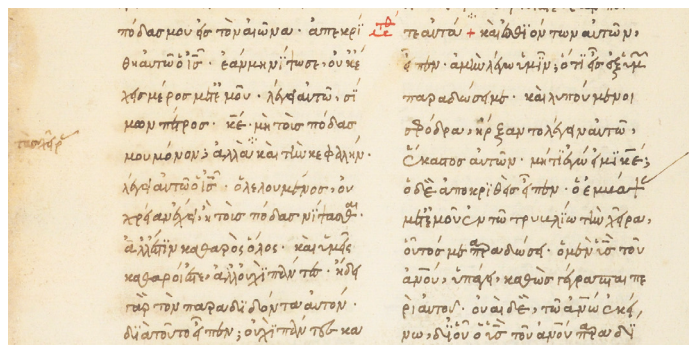 πόδας μου εἰς τὸν αἰῶνα· ἀπεκρί
θη αὐτῶ ὁ ις· ἐὰν μὴ νίψω σε, οὐκ ἔ
χεις μέρος μετ' ἐμοῦ· λέγει αὐτῶ, σί
μων πέτρος· κε· μὴ τοὺς πόδας
μου μόνον; ἀλλὰ καὶ τὴν κεφαλήν·
λέγει αὐτῶ ὁ ις· ὁ λελουμένος, οὐ
χρείαν ἔχει, ἢ τοὺς πόδας νίψασθαι·
ἀλλ' ἔστιν καθαρὸς ὅλος· καὶ ὑμεῖς
καθαροί ἐστε, ἀλλ' οὐχὶ πάντες· ἤδει
γὰρ τὸν παραδιδόντα αὐτόν·
διὰ τοῦτο εἶπεν; οὐχὶ πάντες κα
τε αὐτά + καὶ ἐσθιόντων αὐτῶν,
εἶπεν· ἀμὴν λέγω ὑμῖν; ὅτι εἷς ἐξ ὑμῶν
παραδώσει με· καὶ λυπούμενοι
σφόδρα, ἤρξαντο λέγειν αὐτῶ,
ἕκαστος αὐτῶν· μήτι ἐγώ εἰμι κε;
ὁ δὲ ἀποκριθεὶς εἶπεν· ὁ ἐμβάψας
μετ' ἐμοῦ ἐν τῶ τρυβλίω τὴν χεῖρα,
οὗτός με παραδώσει· ὁ μὲν υς τοῦ
ανου, ὑπάγει, καθὼς γέγραπται πε
ρὶ αὐτοῦ· οὐαὶ δὲ, τῶ ανω ἐκεί
νω, δι' οὗ ὁ υς τοῦ ανου παραδί